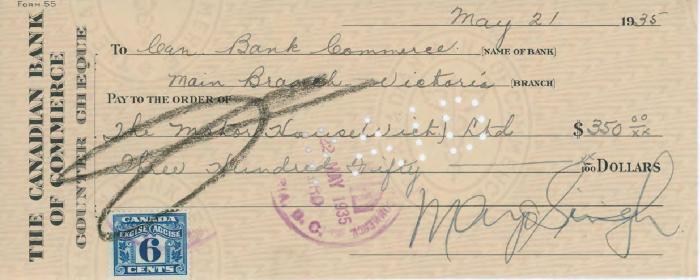 FORM 55
THE CANADIAN BANK
OF COMMERCE
COUNTER CHEQUE
May 21 1935
To Can. Bank Commerce. (NAME OF BANK)
Main Branch Victoria (BRANCH)
PAY TO THE ORDER OF
The Motor House (Vick) Ltd $350 00/xx
Three Hundred Fifty xx/100 DOLLARS
Mayo Singh
22 MAY 1935
B.C.
CANADA
EXCISE ACCISE
6
CENTS